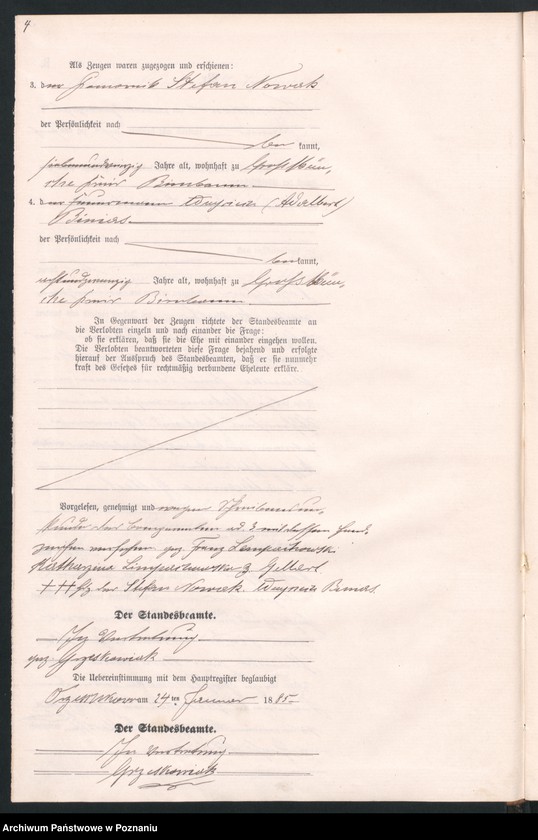 4
Als Zeugen waren zugezogen und erschienen:
3. der Stefan Nowak
der Persönlichkeit nach
kannt,
siebenundzwanzig Jahre alt, wohnhaft zu Groß Mün,
che Kreis Birnbaum
4. der Wuyciech (Adalbert)
Binias
der Persönlichkeit nach
bekannt,
achtundzwanzig Jahre alt, wohnhaft zu Groß Mün,
che Kreis Birnbaum
In Gegenwart der Zeugen richtete der Standesbeamte an
die Verlobten einzeln und nach einander die Frage:
ob sie erklären, daß sie die Ehe mit einander eingehen wollen.
Die Verlobten beantworteten diese Frage bejahend und erfolgte
hierauf der Ausspruch des Standesbeamten, daß er sie nunmehr
kraft des Gesetzes für rechtmäßig verbundene Eheleute erkläre.
Vorgelesen, genehmigt und wegen Schreibensun,
kunde des ad. 3 mit dessen Hand,
zeichen versehen gez. Franz Lempaschowski
Katharzina g. Gelbert
+++ Hz des Stefan Nowak. Wuyciech Binias.
Der Standesbeamte.
In Vertretung
gez. Grzeskowiak
Die Uebereinstimmung mit dem Hauptregister beglaubigt
am 24ten Januar 1885
Der Standesbeamte.
In Vertretung
Grzeskowiak
Archiwum Państwowe w Poznaniu